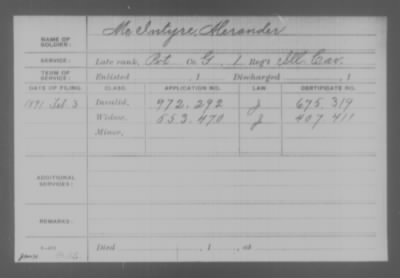 NAME OF SOLDIER: Mc Intyre, Alexander
SERVICE: Late rank, Pvt Co. G, 1 Reg't Ill. Cav.
TERM OF SERVICE: Enlisted , 1 Discharged , 1
DATE OF FILING. CLASS. APPLICATION NO. LAW. CERTIFICATE NO.
1891 Feb 3 Invalid, 972.292 J 675.319
Widow, 553.470 J 407.411
Minor,
ADDITIONAL SERVICES:
REMARKS:
Died , 1 , at